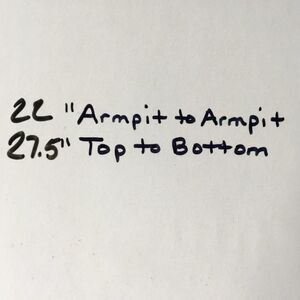 22 "Armpit to Armpit
27.5" Top to Bottom